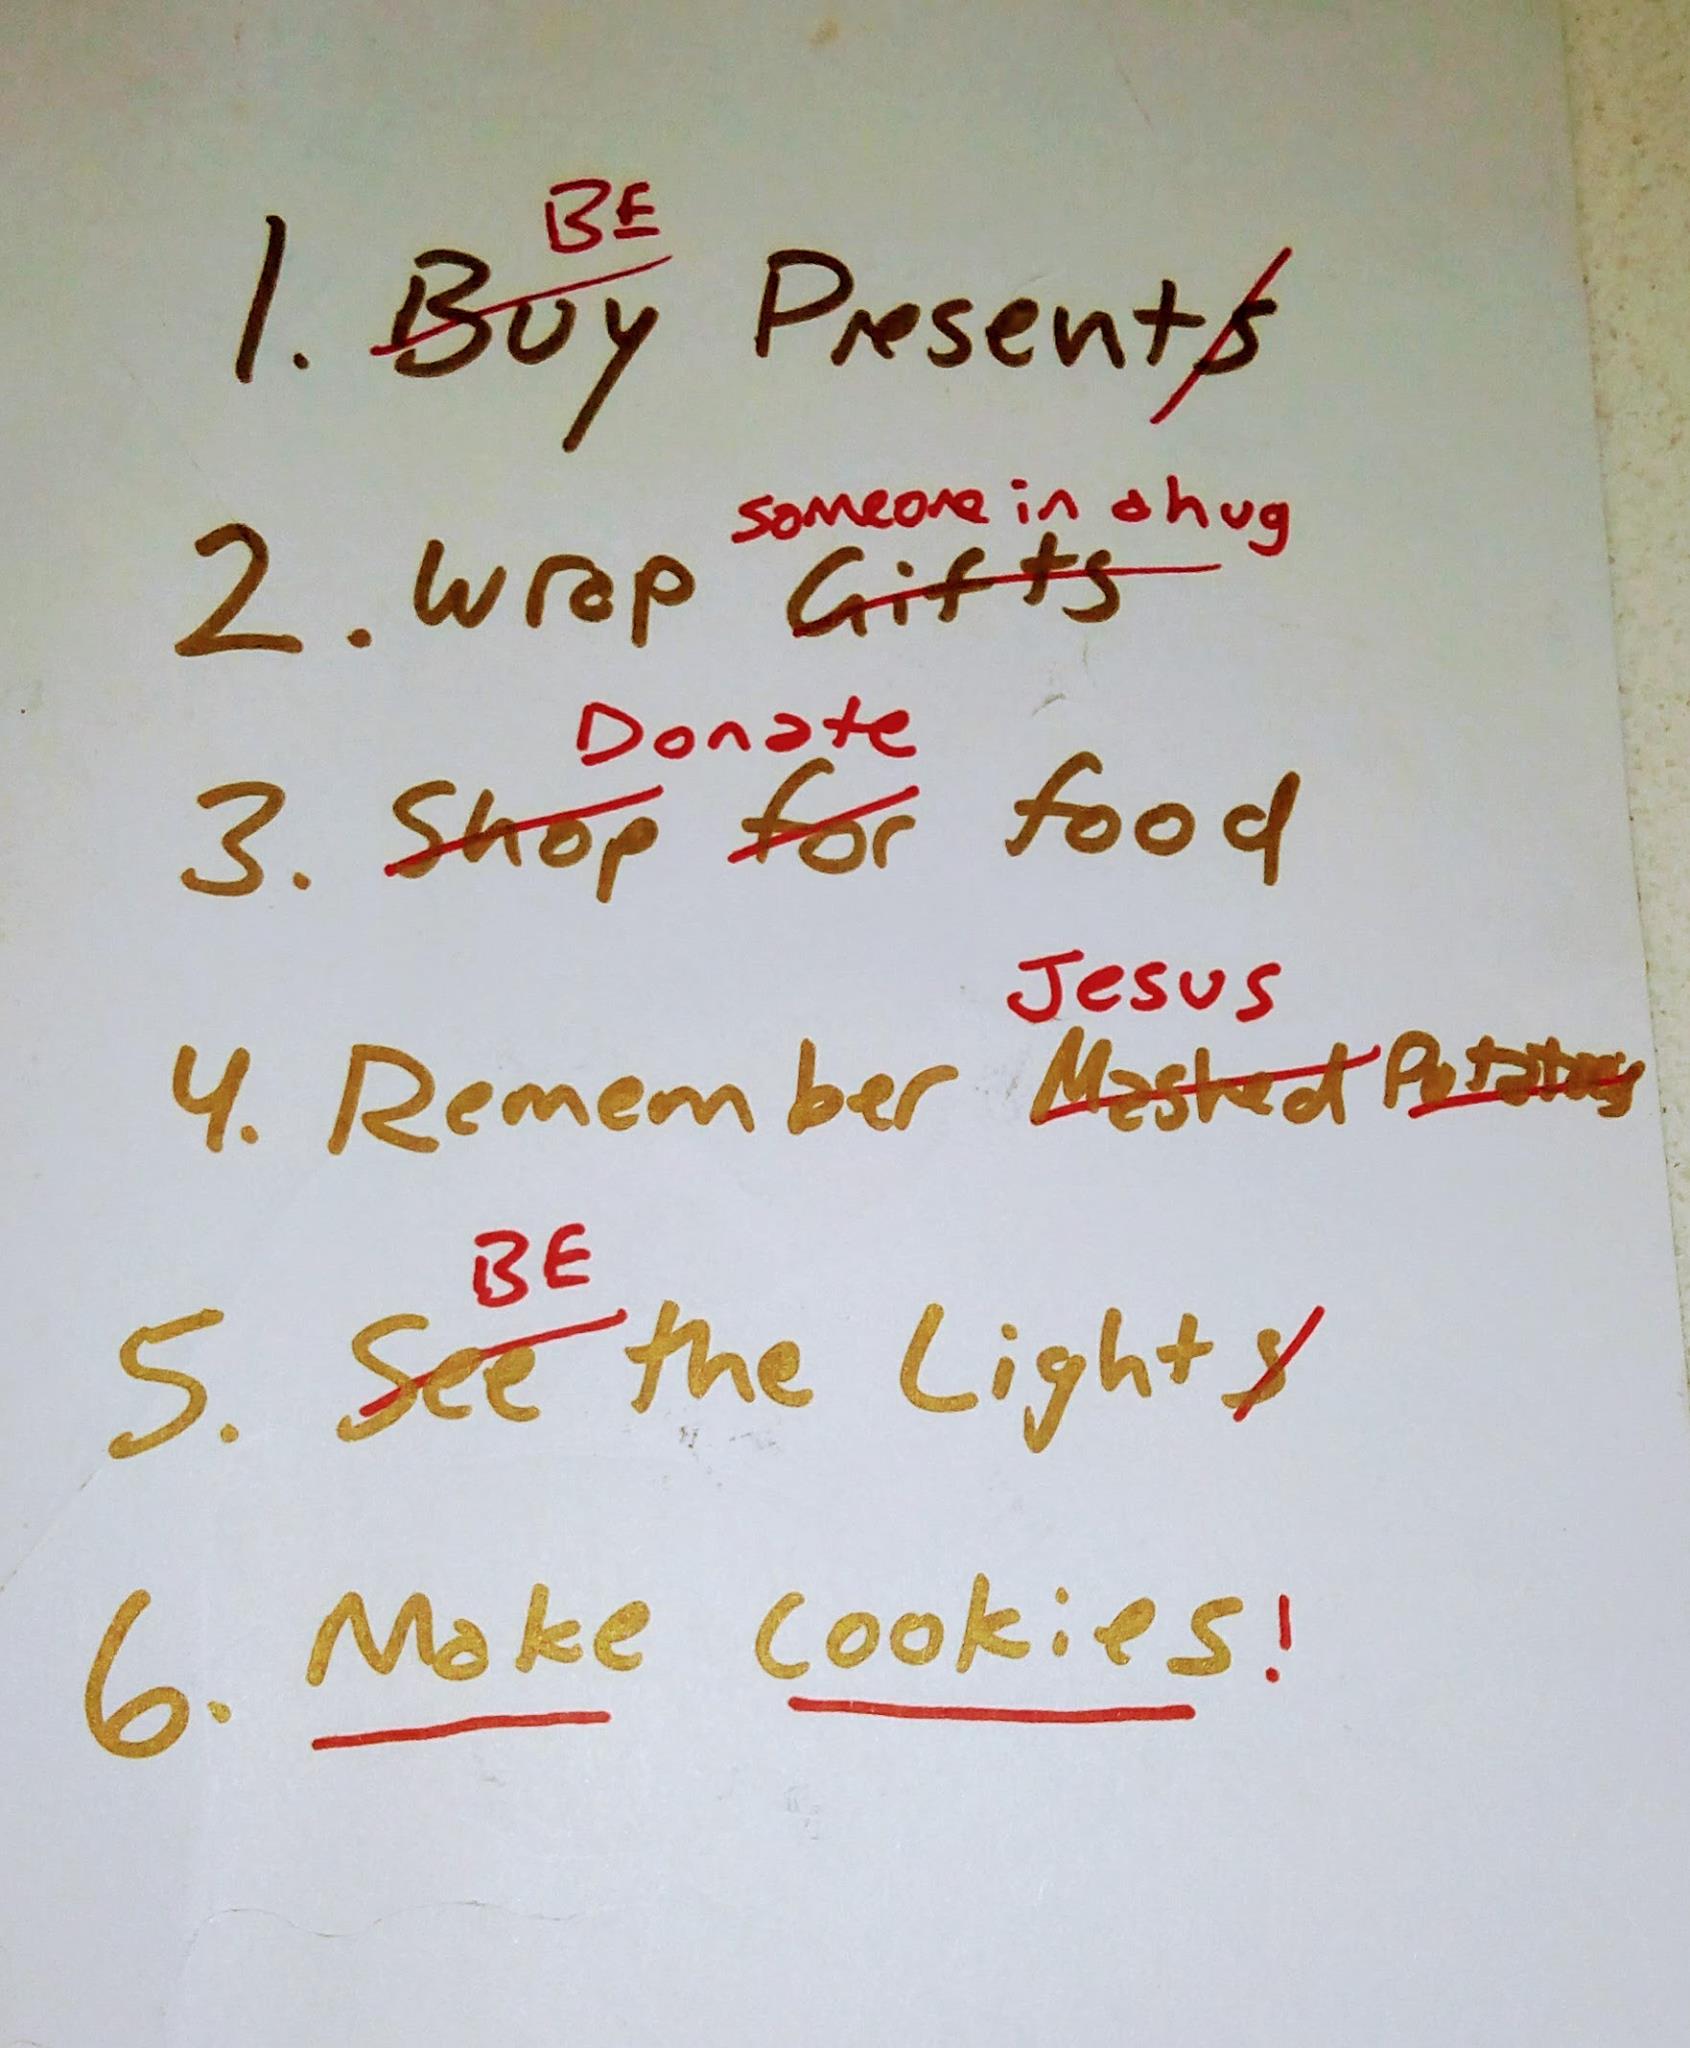 BE
1. Buy Presents
someone in a hug
2. Wrap Gifts
Donate
3. Shop for food
Jesus
4. Remember Mashed Potatoes
BE
5. See the Lights
6. Make Cookies!